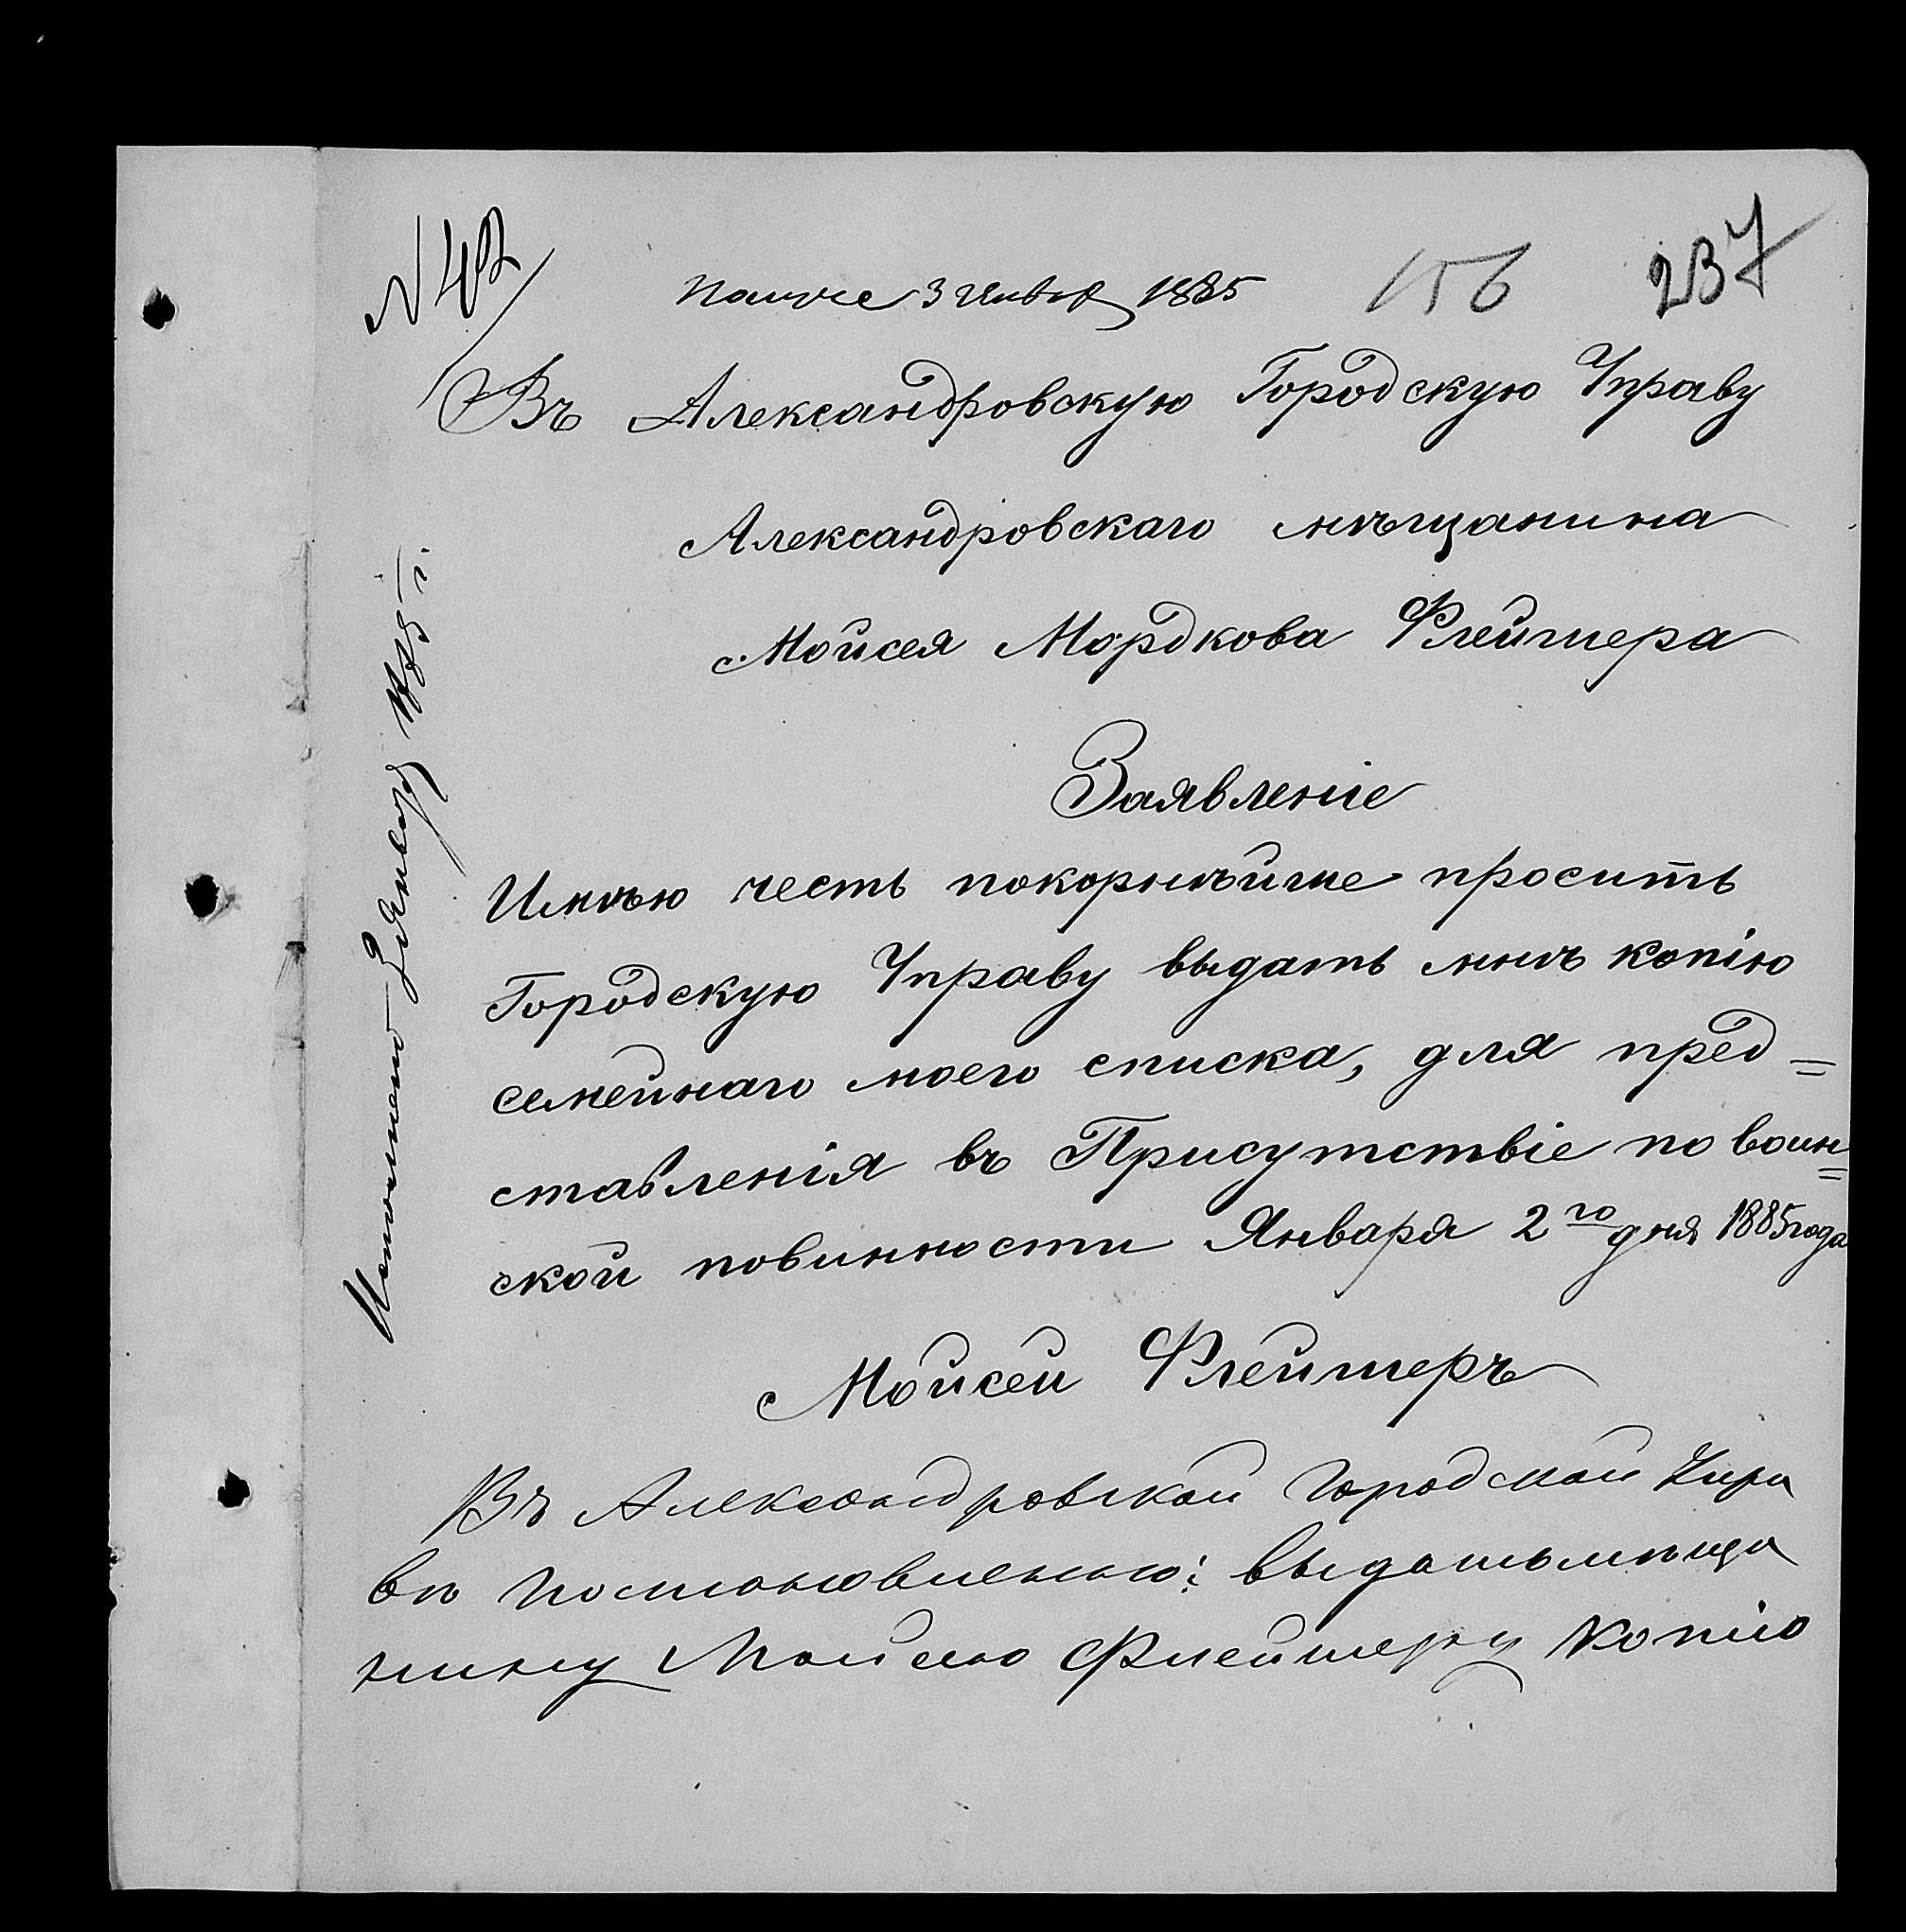 N 42
156
237
Получе 3 Января 1885
Въ Александровскую Городскую Управу
Александровскаго мѣщанина
Мойсея Мордкова Флейшера
Заявленіе
Имѣю честь покорнѣйше просить
Городскую Управу выдать мнѣ копію
семейнаго моего списка, для пред=
ставленія въ Присутствіе по воин=
ской повинности Января 2го дня 1885 года
Мойсей Флейшеръ
Въ Александровской Городской Упра
вѣ постановлено: выдать мѣща
нину Мойсею Флейшеру копію
Исполнено 3 Января 1885 г.